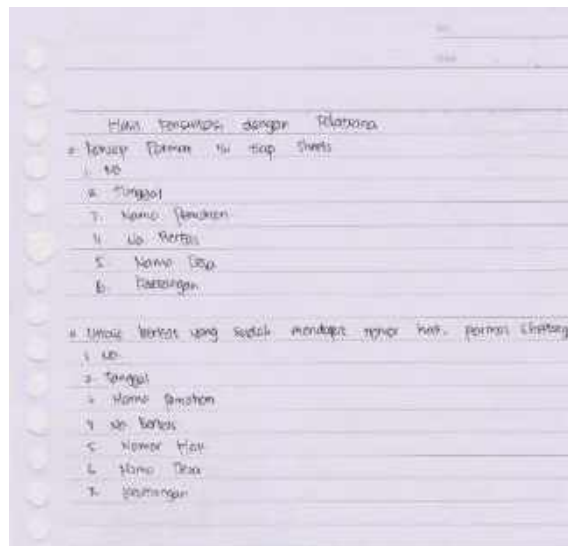 Hasil Konsultasi dengan Pelaksana
# Konsep Format isi tiap Sheets
1. No
2. Tanggal
3. Nama Pemohon
4. No Berkas
5. Nama Desa
6. Keterangan
# Untuk berkas yang sudah mendapat nomor hak, format
1. No
2. Tanggal
3. Nama Pemohon
4. No Berkas
5. Nomor Hak
6. Nama Desa
7. Keterangan